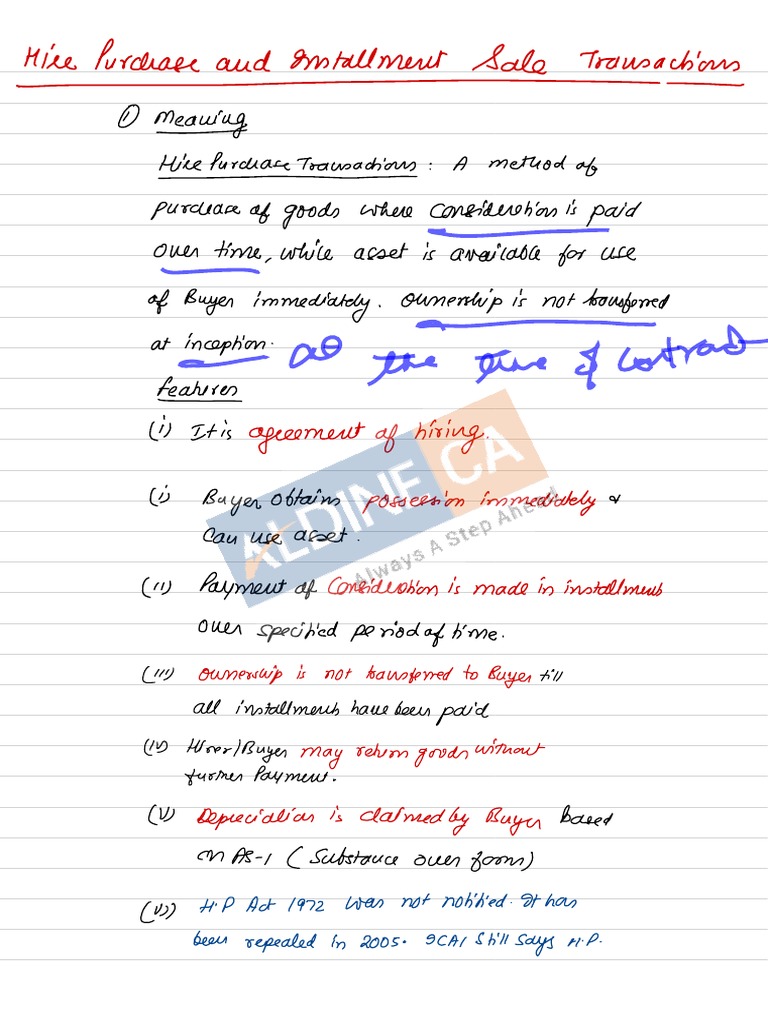 Hire Purchase and Installment Sale Transactions
① Meaning
Hire Purchase Transactions : A method of
purchase of goods where consideration is paid
over time, while asset is available for use
of Buyer immediately. Ownership is not transferred
at inception. at the time of contract
features
(i) It is agreement of hiring.
(i) Buyer obtains possession immediately &
can use asset.
(ii) Payment of Consideration is made in installments
over specified period of time.
(iii) Ownership is not transferred to Buyer till
all installments have been paid
(iv) Hirer/Buyer may return goods without
further Payment.
(v) Depreciation is claimed by Buyer based
on AS-1 (Substance over form)
(vi) H.P Act 1972 was not notified. It has
been repealed in 2005. ICAI Still says H.P.
ALDINE CA
Always A Step Ahead